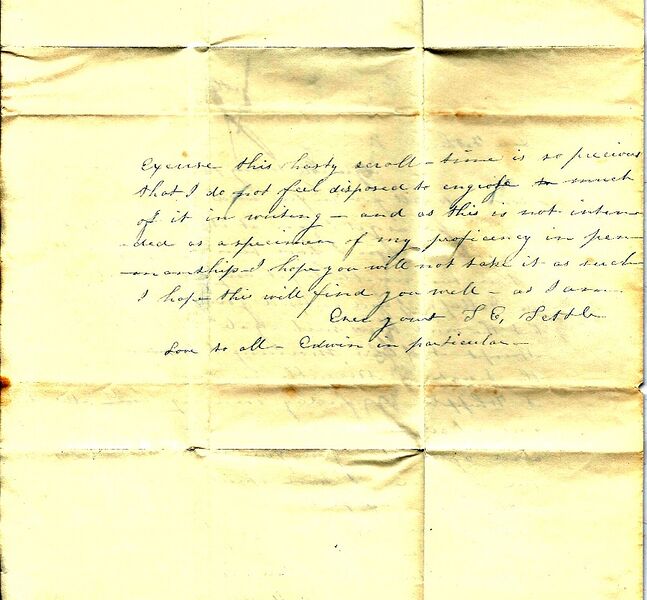 Excuse this hasty scroll - time is so precious
that I do not feel disposed to engross to much
of it in writing - and as this is not inten-
-ded as a specimen of my proficency in pen-
-manship - I hope you will not take it as such
I hope this will find you well - as I am -
Ever yours S E, Settle
Love to all - Edwin in particular -